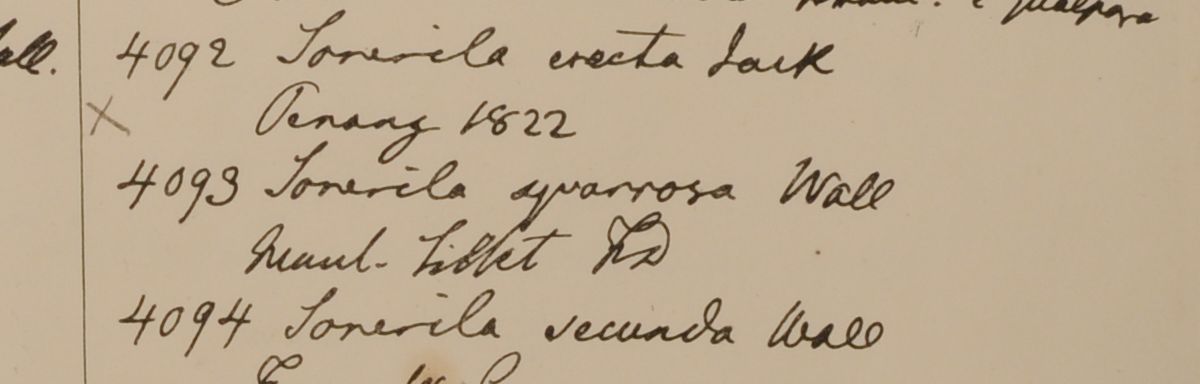 all.
4092 Sonerila erecta Jack
Penang 1822
4093 Sonerila squarrosa Wall
Mont. Sillet FD
4094 Sonerila secunda Wall